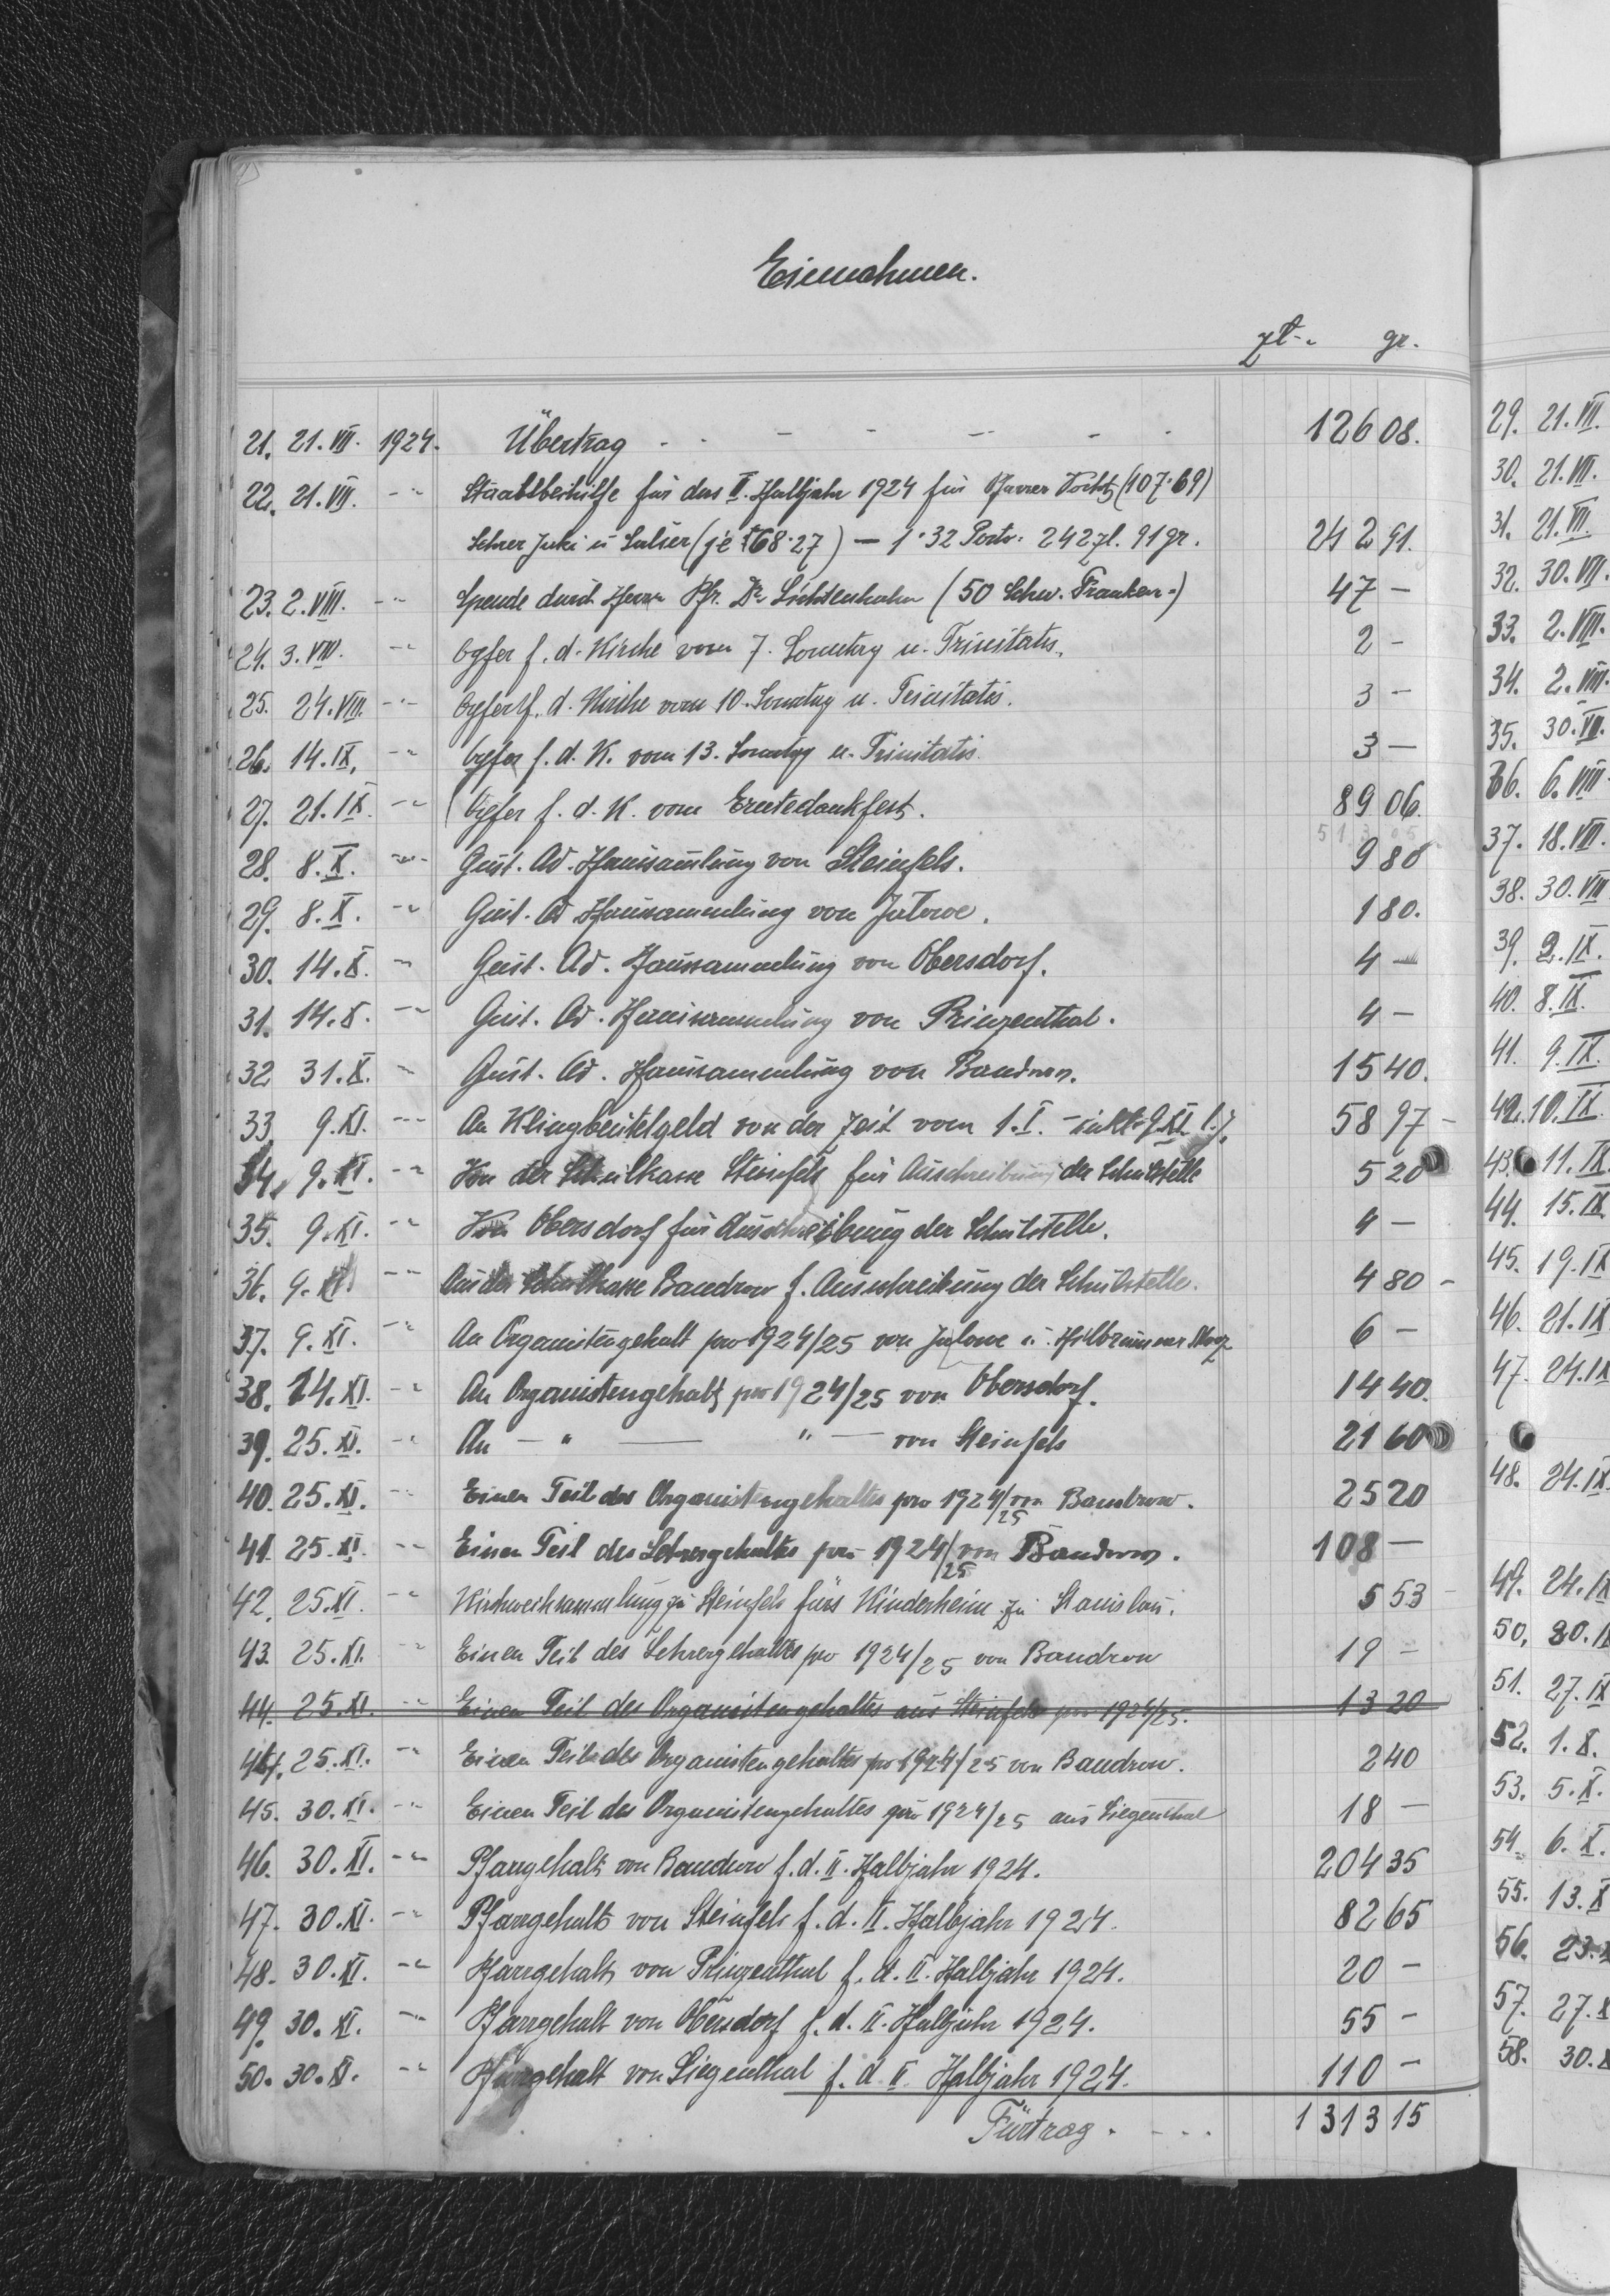 Einnahmen.
zł. gr.
21. 21.VII. 1924. Übertrag 126 08.
22. 21.VII. -"- Staatsbeihilfe für das II. Halbjahr 1924 für Pfarrer (107·69)
Lehrer u. (je 68·27) – 1·32 Porto: 242 zl. 91 gr. 242 91.
23. 2.VIII. -"- Spende durch Herrn Pfr. Dr. Lichtenhahn (50 Schw. Franken.) 47 –
24. 3.VIII. -"- Opfer f. d. Kirche vom 7. Sonntag n. Trinitatis. 2 –
25. 24.VIII. -"- Opfer f. d. Kirche vom 10. Sonntag n. Trinitatis. 3 –
26. 14.IX. -"- Opfer f. d. K. vom 13. Sonntag n. Trinitatis. 3 –
27. 21.IX. -"- Opfer f. d. K. vom Erntedankfest. 89 06.
513 05
28. 8.X. -"- Gust. Ad. Haussamlung von Steinfels. 9 80
29. 8.X. -"- Gust. Ad Haussammlung von Jalowe. 1 80.
30. 14.X. -"- Gust. Ad. Haussammlung von Obersdorf. 4 –
31. 14.X. -"- Gust. Ad. Haussammlung von Prinzenthal. 4 –
32 31.X. -"- Gust. Ad. Haussammlung von Bandrow. 15 40.
33. 9.XI. -"- An Klingbeutelgeld von der Zeit vom 1.I. – inkl. 9.XI. l. J. 58 97 –
34. 9.XI. -"- Von der Schulkasse Steinfels für Auschreibung der Schulstelle 5 20
35. 9.XI. -"- Von Obersdorf für Ausschreibung der Schulstelle. 4 –
36. 9.XI. -"- Aus der Schulkasse Bandrow f. Ausschreibung der Schulstelle. 4 80 –
37. 9.XI. -"- An Organistengehalt pro 1924/25 von Jalowe u. 6 –
38. 14.XI. -"- An Organistengehalt pro 1924/25 von Obersdorf. 14 40.
39. 25.XI. -"- An – " – " – von Steinfels 21 60
40. 25.XI. -"- Einen Teil des Organistengehaltes pro 1924/25 von Bandrow. 25 20
41. 25.XI. -"- Einen Teil des Lehrergehaltes pro 1924/25 von Bandrow. 108 –
42. 25.XI. -"- Kirchweihsammlung zu Steinfels fürs Kinderheim zu Stanislau. 5 53 –
43. 25.XI. -"- Einen Teil des Lehrergehaltes pro 1924/25 von Bandrow 19 –
44. 25.XI. -"- Einen Teil des Organistengehaltes aus Steinfels pro 1924/25. 13 20
44. 25.XI. -"- Einen Teil des Organistengehaltes pro 1924/25 von Bandrow. 2 40
45. 30.XI. -"- Einen Teil des Organistengehaltes pro 1924/25 aus Siegenthal 18 –
46. 30.XI. -"- Pfarrgehalt von Bandrow f. d. II. Halbjahr 1924. 204 35
47. 30.XI. -"- Pfarrgehalt von Steinfels f. d. II. Halbjahr 1924. 82 65
48. 30.XI. -"- Pfarrgehalt von Prinzenthal f. d. II. Halbjahr 1924. 20 –
49. 30.XI. -"- Pfarrgehalt von Obersdorf f. d. II. Halbjahr 1924. 55 –
50. 30.XI. -"- Pfarrgehalt von Siegenthal f. d. II. Halbjahr 1924. 110 –
Fürtrag. 1313 15
29. 21.VII.
30. 21.VII.
31. 21.VII.
32. 30.VII.
33. 2.VIII.
34. 2.VIII.
35. 30.VII.
36. 6.VIII.
37. 18.VIII.
38. 30.VIII
39. 2.IX.
40. 8.IX.
41. 9.IX.
42. 10.IX.
43. 11.IX.
44. 15.IX.
45. 19.IX
46. 21.IX
47. 24.IX
48. 24.IX.
49. 24.IX
50. 20.IX
51. 27.IX
52. 1.X.
53. 5.X.
54. 6.X.
55. 13.X
56. 23.X
57. 27.X
58. 30.X